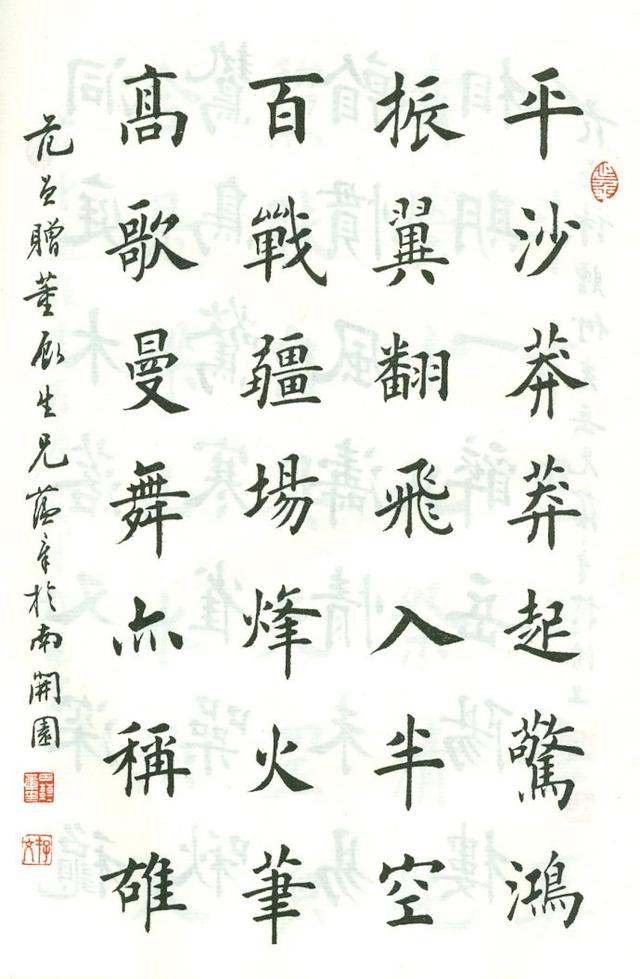 平沙莽莽起驚鴻
振翼翻飛入半空
百戰疆場烽火筆
髙歌曼舞亦稱雄
范曾贈董辰生兄蘊章於南開園